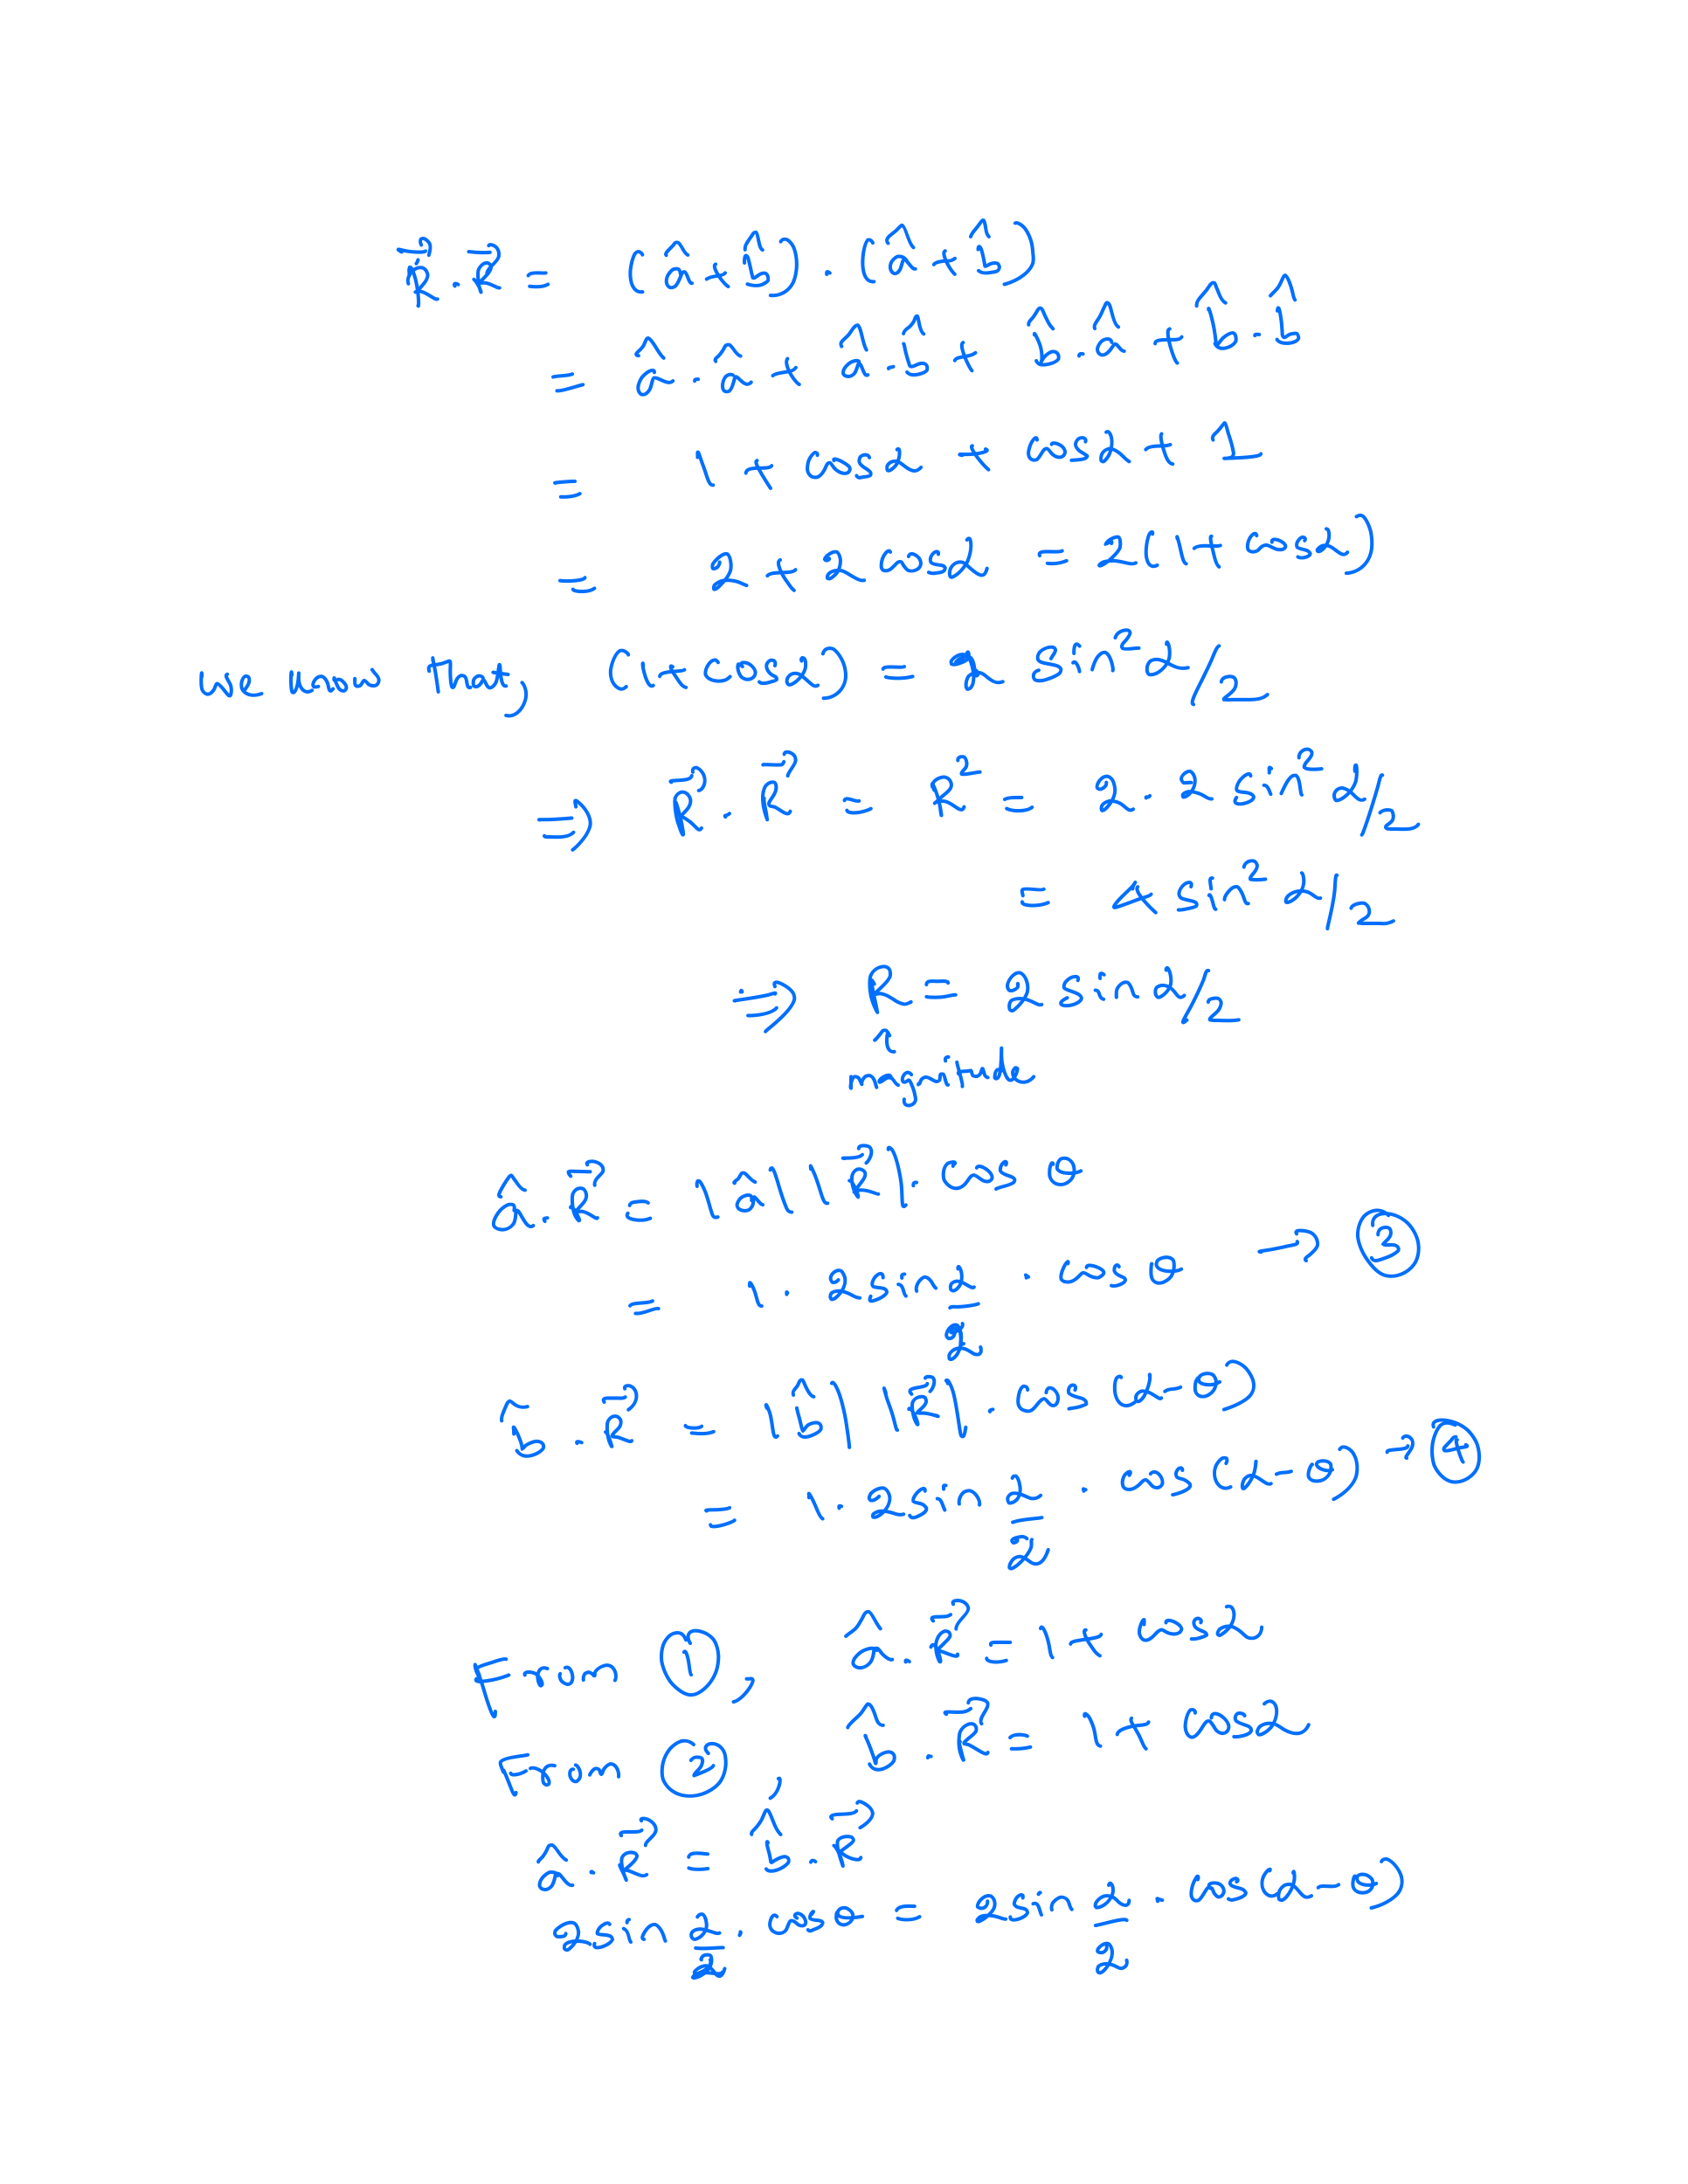 R⃗.R⃗ = (â+b̂).(â+b̂)
= â.â + â.b̂ + b̂.â + b̂.b̂
= 1 + cosα + cosα + 1
= 2+2cosα = 2(1+cosα)
we know that, (1+cosα) = 2 sin²α/2
⇒ R⃗.R⃗ = R² = 2.2 sin²α/2
= 4 sin²α/2
⇒ R = 2 sin α/2
↑
magnitude
â.R⃗ = |â||R⃗|.cos θ
= 1. 2sin α/2 . cos θ → ③
b̂.R⃗ = |b̂||R⃗|.cos(α-θ)
= 1. 2sin α/2 . cos(α-θ) → ④
From ①, â.R⃗ = 1+cosα
From ②, b̂.R⃗ = 1+cosα
â.R⃗ = b̂.R⃗
2sin α/2 . cos θ = 2sin α/2 . cos(α-θ)